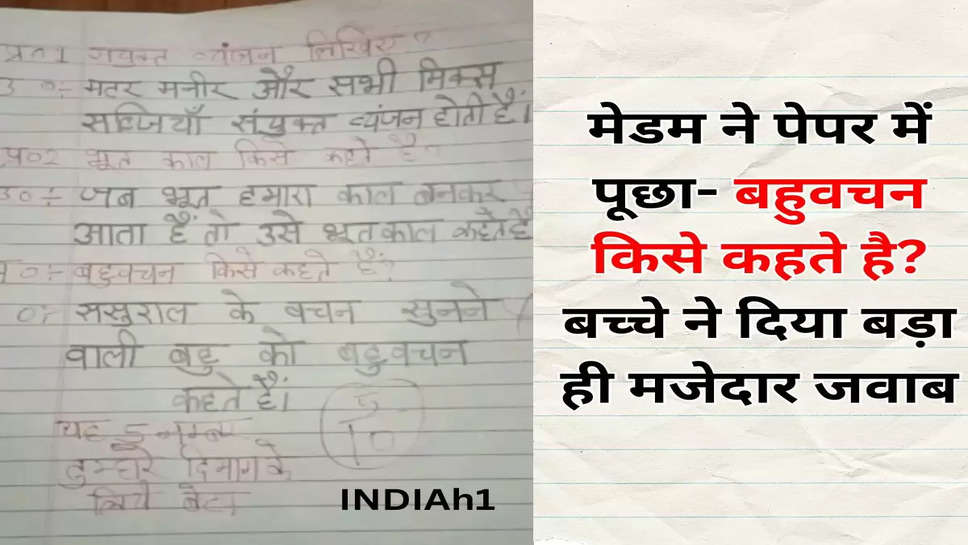 प्र०1 संयुक्त व्यंजन लिखिए?
उ०ः- मटर मनीर और सभी मिक्स
सब्जियाँ संयुक्त व्यंजन होती हैं।
प्र०2 भूत काल किसे कहते है?
उ०ः- जब भूत हमारा काल बनकर
आता है तो उसे भूतकाल कहते है
प्र०ः- बहुवचन किसे कहते हैं?
उ०ः- ससुराल के वचन सुनने
वाली बहु को बहुवचन
कहते हैं।
5
10
यह 5 नम्बर
तुम्हारे दिमाग के
लिये बेटा
INDIAh1
मेडम ने पेपर में
पूछा- बहुवचन
किसे कहते है?
बच्चे ने दिया बड़ा
ही मजेदार जवाब